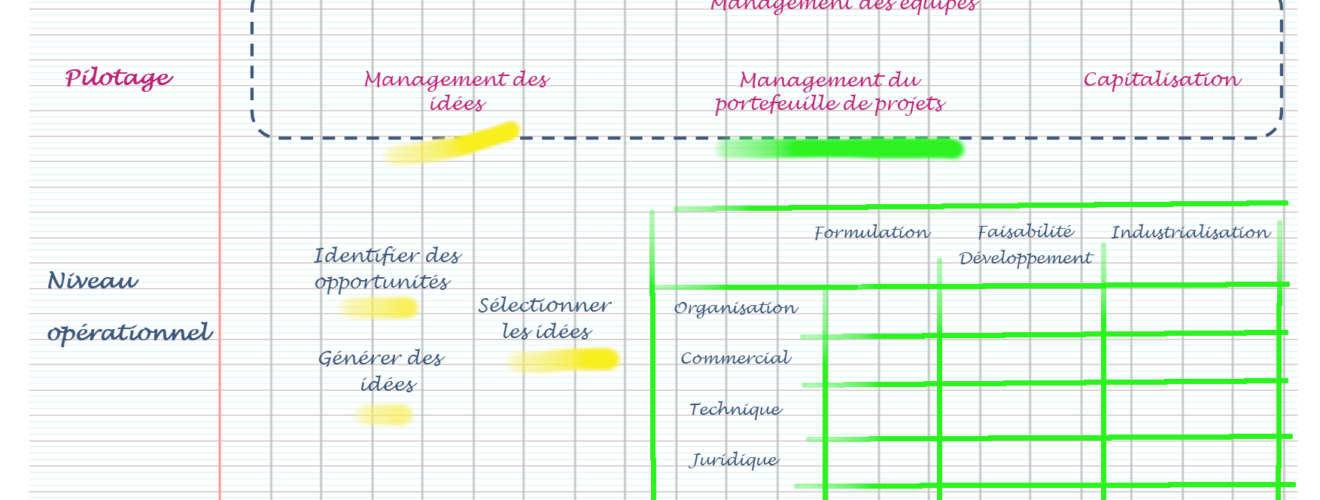 Management des équipes
Pilotage
Management des
idées
Management du
portefeuille de projets
Capitalisation
Niveau
opérationnel
Identifier des
opportunités
Générer des
idées
Sélectionner
les idées
Formulation
Faisabilité
Développement
Industrialisation
Organisation
Commercial
Technique
Juridique